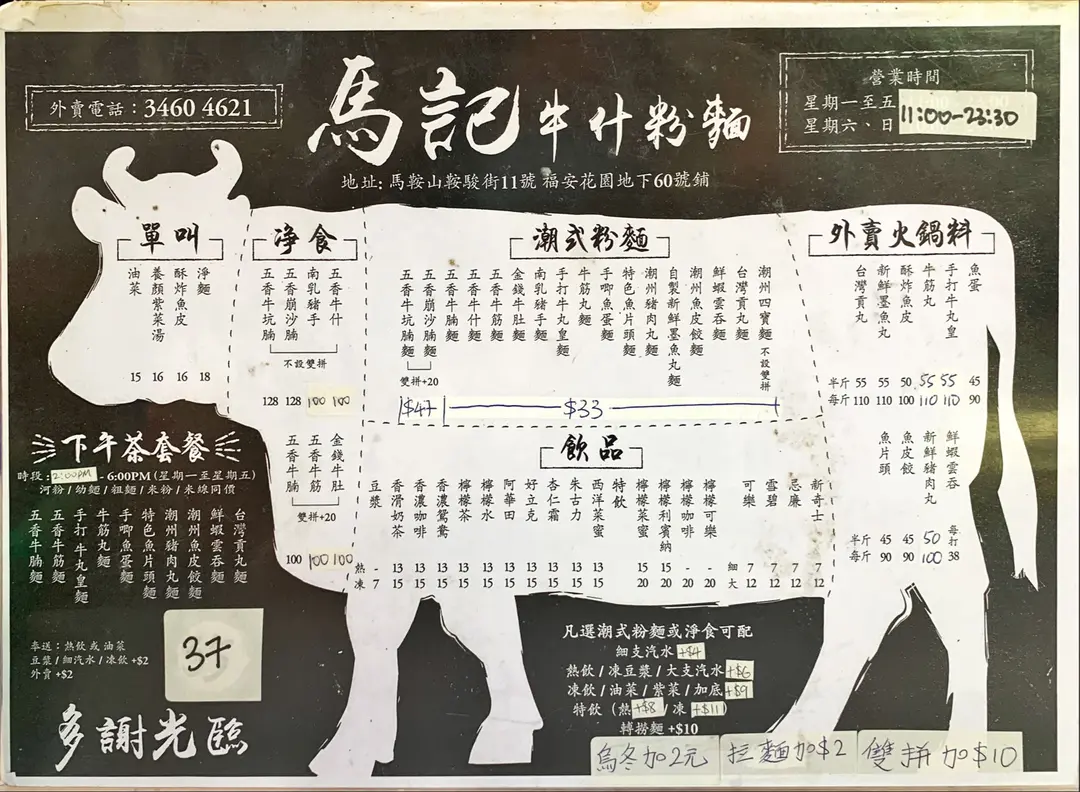 外賣電話：3460 4621
馬記牛什粉麵
地址: 馬鞍山鞍駿街11號 福安花園地下60號鋪
營業時間
星期一至五
星期六、日
11:00-23:30
單叫
油菜 15
養顏紫菜湯 16
酥炸魚皮 16
淨麵 18
净食
五香牛坑腩 128
五香崩沙腩 128
南乳豬手 100
五香牛什 100
不設雙拼
五香牛腩 100
五香牛筋 100
金錢牛肚 100
雙拼+20
潮式粉麵
五香牛坑腩麵
五香崩沙腩麵
雙拼+20
$47
五香牛腩麵
五香牛什麵
五香牛筋麵
金錢牛肚麵
南乳豬手麵
手打牛丸皇麵
牛筋丸麵
手唧魚蛋麵
特色魚片頭麵
潮州豬肉丸麵
自製新鮮墨魚丸麵
潮州魚皮餃麵
鮮蝦雲吞麵
台灣貢丸麵
潮州四寶麵 不設雙拼
$33
飲品
熱
凍
豆漿 - 7
香滑奶茶 13 15
香濃咖啡 13 15
香濃鴛鴦 13 15
檸檬茶 13 15
檸檬水 13 15
阿華田 13 15
好立克 13 15
杏仁霜 13 15
朱古力 13 15
西洋菜蜜 13 15
特飲
檸檬菜蜜 15 20
檸檬利賓納 15 20
檸檬咖啡 - 20
檸檬可樂 - 20
細
大
可樂 7 12
雪碧 7 12
忌廉 7 12
新奇士 7 12
外賣火鍋料
半斤
每斤
台灣貢丸 55 110
新鮮墨魚丸 55 110
酥炸魚皮 50 100
牛筋丸 55 110
手打牛丸皇 55 110
魚蛋 45 90
半斤
每斤
魚片頭 45 90
魚皮餃 45 90
新鮮豬肉丸 50 100
鮮蝦雲吞 每打 38
下午茶套餐
時段：2:00PM - 6:00PM (星期一至星期五)
河粉 / 幼麵 / 粗麵 / 米粉 / 米線同價
五香牛腩麵
五香牛筋麵
手打牛丸皇麵
牛筋丸麵
手唧魚蛋麵
特色魚片頭麵
潮州豬肉丸麵
潮州魚皮餃麵
鮮蝦雲吞麵
台灣貢丸麵
奉送：熱飲 或 油菜
豆漿 / 細汽水 / 凍飲 +$2
外賣 +$2
37
多謝光臨
凡選潮式粉麵或淨食可配
細支汽水 +$4
熱飲 / 凍豆漿 / 大支汽水 +$6
凍飲 / 油菜 / 紫菜 / 加底 +$9
特飲（熱 +$8 / 凍 +$11）
轉撈麵 +$10
烏冬加2元
拉麵加$2
雙拼加$10